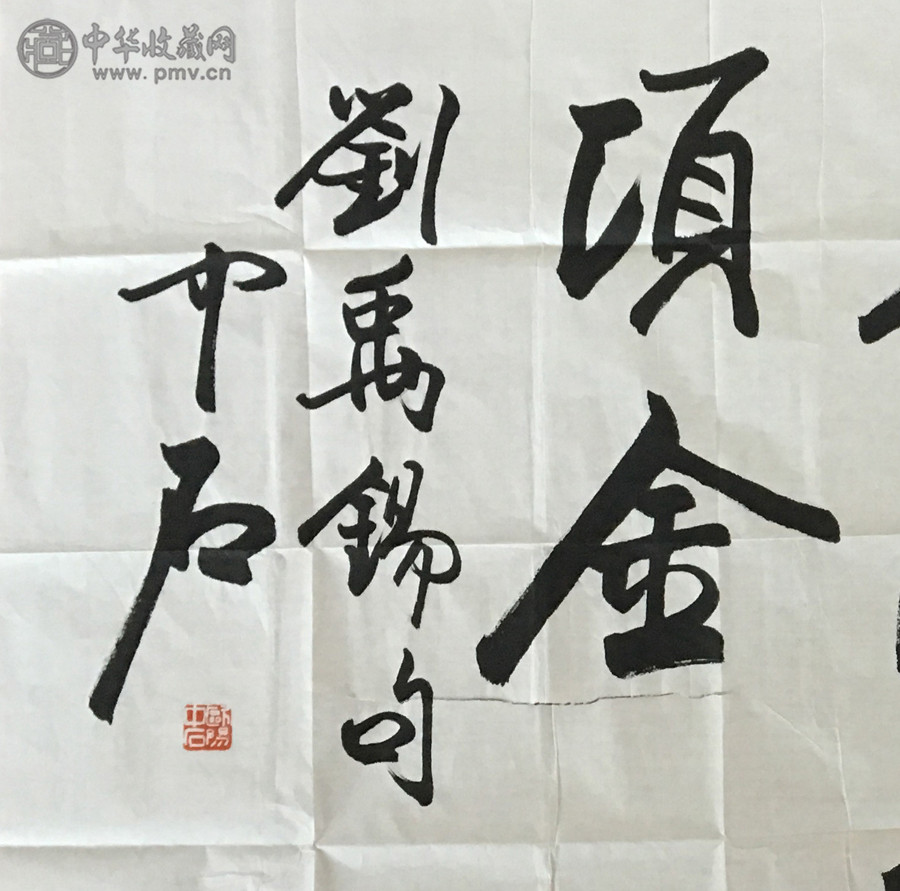 中华收藏网
www.pmv.cn
須金
劉禹錫句
中石
歐陽中石